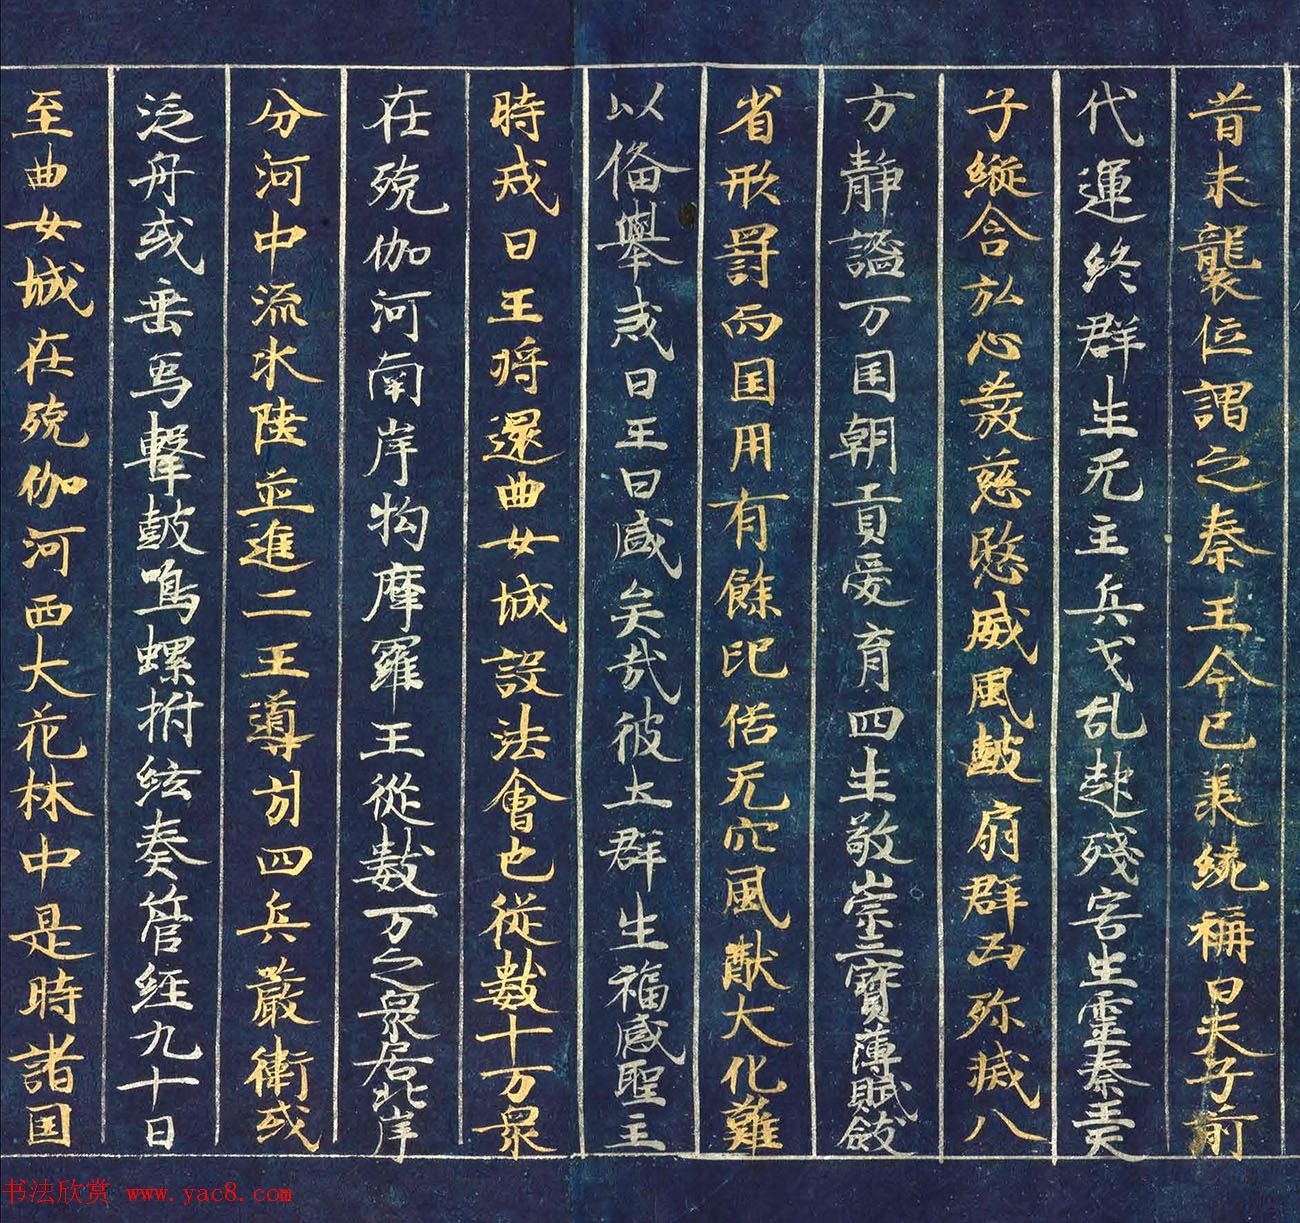 昔未襲位謂之秦王今已承統稱曰天子前
代運終群生无主兵戈乱起殘害生靈秦王天
子縱含弘心發慈愍威風鼓扇群凶殄滅八
方靜謐万国朝貢愛育四生敬崇三寶薄賦斂
省刑罰而国用有餘氓俗无宄風猷大化難
以俻舉戒日王曰盛矣哉彼土群生福感聖主
時戒日王將還曲女城設法會也從數十万眾
在殑伽河南岸拘摩羅王從數万之眾居北岸
分河中流水陸並進二王導引四兵嚴衛或
泛舟或乘象擊鼓鳴螺拊絃奏管經九十日
至曲女城在殑伽河西大花林中是時諸国
书法欣赏 www.yac8.com